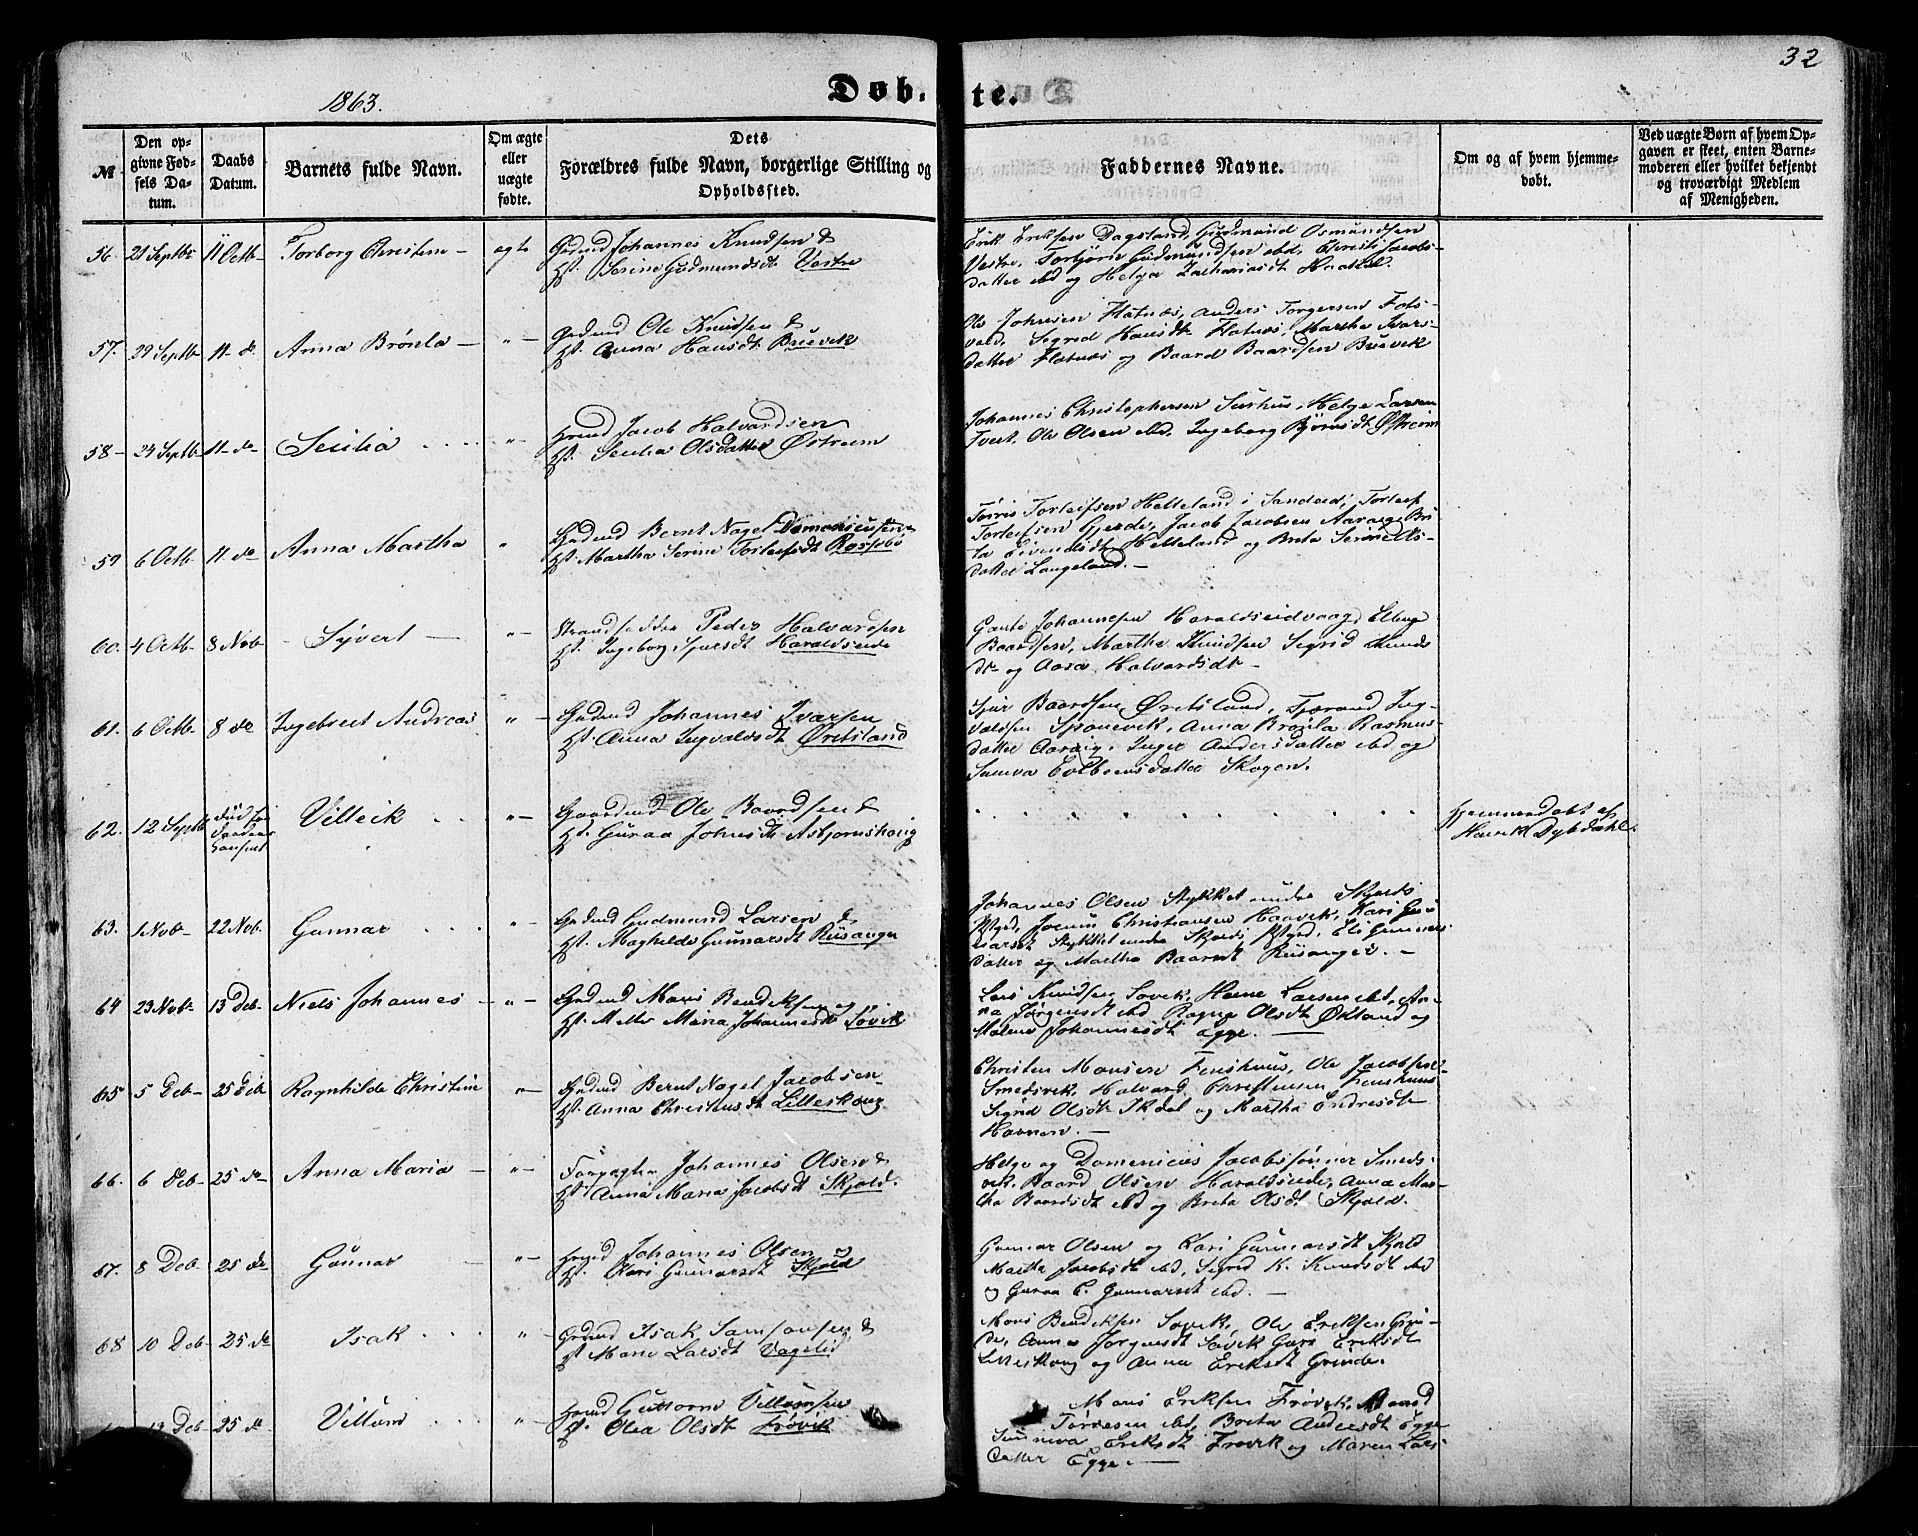 32
1863.
Døb.
te.
№
Den op-
givne Fød-
sels Da-
tum.
Daabs
Datum.
Barnets fulde Navn.
Om ægte
eller
uægte
fødte.
Dets
Forældres fulde Navn, borgerlige Stilling og
Opholdssted.
Faddernes Navne.
Om og af hvem hjemme-
døbt.
Ved uægte Børn af hvem Op-
gaven er skeet, enten Barne-
moderen eller hvilket bekjendt
og troværdigt Medlem
af Menigheden.
56. 21 Septbr 11 Octb Torborg Christine ægte
Grdmd Johannes Knudsen &
Hst. Serine Gudmundsdt Vestre
Erik Eriksen Dagsland, Gudmund Osmundsen
Vestre, Torbjörn Gudmundsen ibd, Christi Jacobs-
datter ibd og Helga Zachariasdt
57. 29 Septb 11 do Anna Brønla
Grdmd Ole Knudsen &
Hst. Anna Hansdt Buevik
Ole Johnsen Flatnæs, Anders Torgersen
Segred Hansdt Flatnæs, Martha Ivars-
datter Flatnæs og Baard Baardsen Buevik
58 24 Septb 11 do Secilia
Hmd Jacob Halvardsen
Hst. Secilia Olsdatter Østreim
Johannes Christophersen Helge Larsen
Tvert, Ole Olsen ibd, Ingeborg Bjørnsdt Østreim
59 6 Octb 11 do Anna Martha
Grdmd Bernt Nagel Domenicusen
Hst. Martha Serine Torleifsdt Rossebö
Tørris Torleifsen Helleland i Sandeid, Torleif
Torleifsen Gjerde, Jacob Jacobsen Aaraig, Bri-
ta Eivendsdt Helleland og Brita
datter Langeland.
60. 4 Octb 8 Nob Syvert
Strandsidder Peder Halvardsen
Hst. Ingeborg Sjursdt Haraldseide
Gaute Johannesen Haraldseidvaag,
Baardsen, Martha Knudsen Segrid
dt og Aasa Halvardsdt
61. 6 Octb 8 do Ingebret Andreas
Grdmd Johannes Ivarsen
Hst. Anna Ingvaldsdt Øretsland
Sjur Baardsen Øretsland, Tjærand Ing-
valdsen Anna Brønla Rasmus-
datter Aaraig, Inger Andersdatter ibd og
datter Skogen.
62. 12 Septb
Villeik
Gaardmd Ole Baardsen &
Hst. Guraa Johnsdt Asbjørnshaug
Hjemmedøbt af
Henrik Dybdahl.
63. 1 Nob 22 Nob. Gunnar
Grdmd Gudmund Larsen &
Hst. Maghilde Gunnarsdt Riisanger
Johannes Olsen Stykket under Skjolds
Pstgrd, Joemn Christiansen Haavik, Kari Gun-
narsdt Stykket under Skjolds Pstgrd, Eli Gunnars-
datter og Martha Baarsdt Riisanger.
64 23 Nob 13 Deb Niels Johannes
Grdmd Mons Bendiksen og
Hst. Mette Maria Johannesdt Søvik
Lars Knudsen Søvik, Hans Larsen ibd, An-
na Jørgensdt ibd Ragna Olsdt Økland og
Malene Johannesdt Egge.
65 5 Deb 25 Deb Ragnhilde Christine
Grdmd Bernt Nagel Jacobsen
Hst. Anna Christensdt Litleskoug
Christen Monsen Fenshuus, Ole Jacobsen
Smedsvik, Halvard Christensen Fenshuus
Segrid Olsdt Ikdal og Martha Endresdt
Havnen.
66. 6 Deb 25 do Anna Maria
Forpagter Johannes Olsen &
Hst. Anna Maria Jacobsdt Skjold.
Helge og Domenicus Jacobsønner Smeds-
vik, Baard Olsen Haraldseide, Anna Mar-
tha Baardsdt ibd og Breta Olsdt Skjold.
67. 8 Deb 25 do Gunnar
Hmd Johannes Olsen og
Hst. Kari Gunnarsdt Skjold
Gunnar Olsen og Kari Gunnarsdt Skjold
Martha Jacobsdt ibd, Segred K. Knudsdt ibd
og Guraa E. Gunnarsdt ibd.
68 10 Deb 25 do Isak
Grdmd Isak Samsonsen &
Hst Marie Larsdt Vagelid
Mons Bendiksen Søvik, Ole Eriksen Grin-
de, Anna Jørgensdt Søvik Guri Eriksdt
Litleskoug og Anna Eriksdt Grinde.
13 Deb 25 do Villum
Hmd Guttorm Villumsen
Hst. Olea Olsdt Frøvik
Mons Eriksen Frøvik,
Tørresen ibd, Breta Andersdt Egge
Sunneva Eriksdt Frøvik og Maren Lars-
datter Egge.